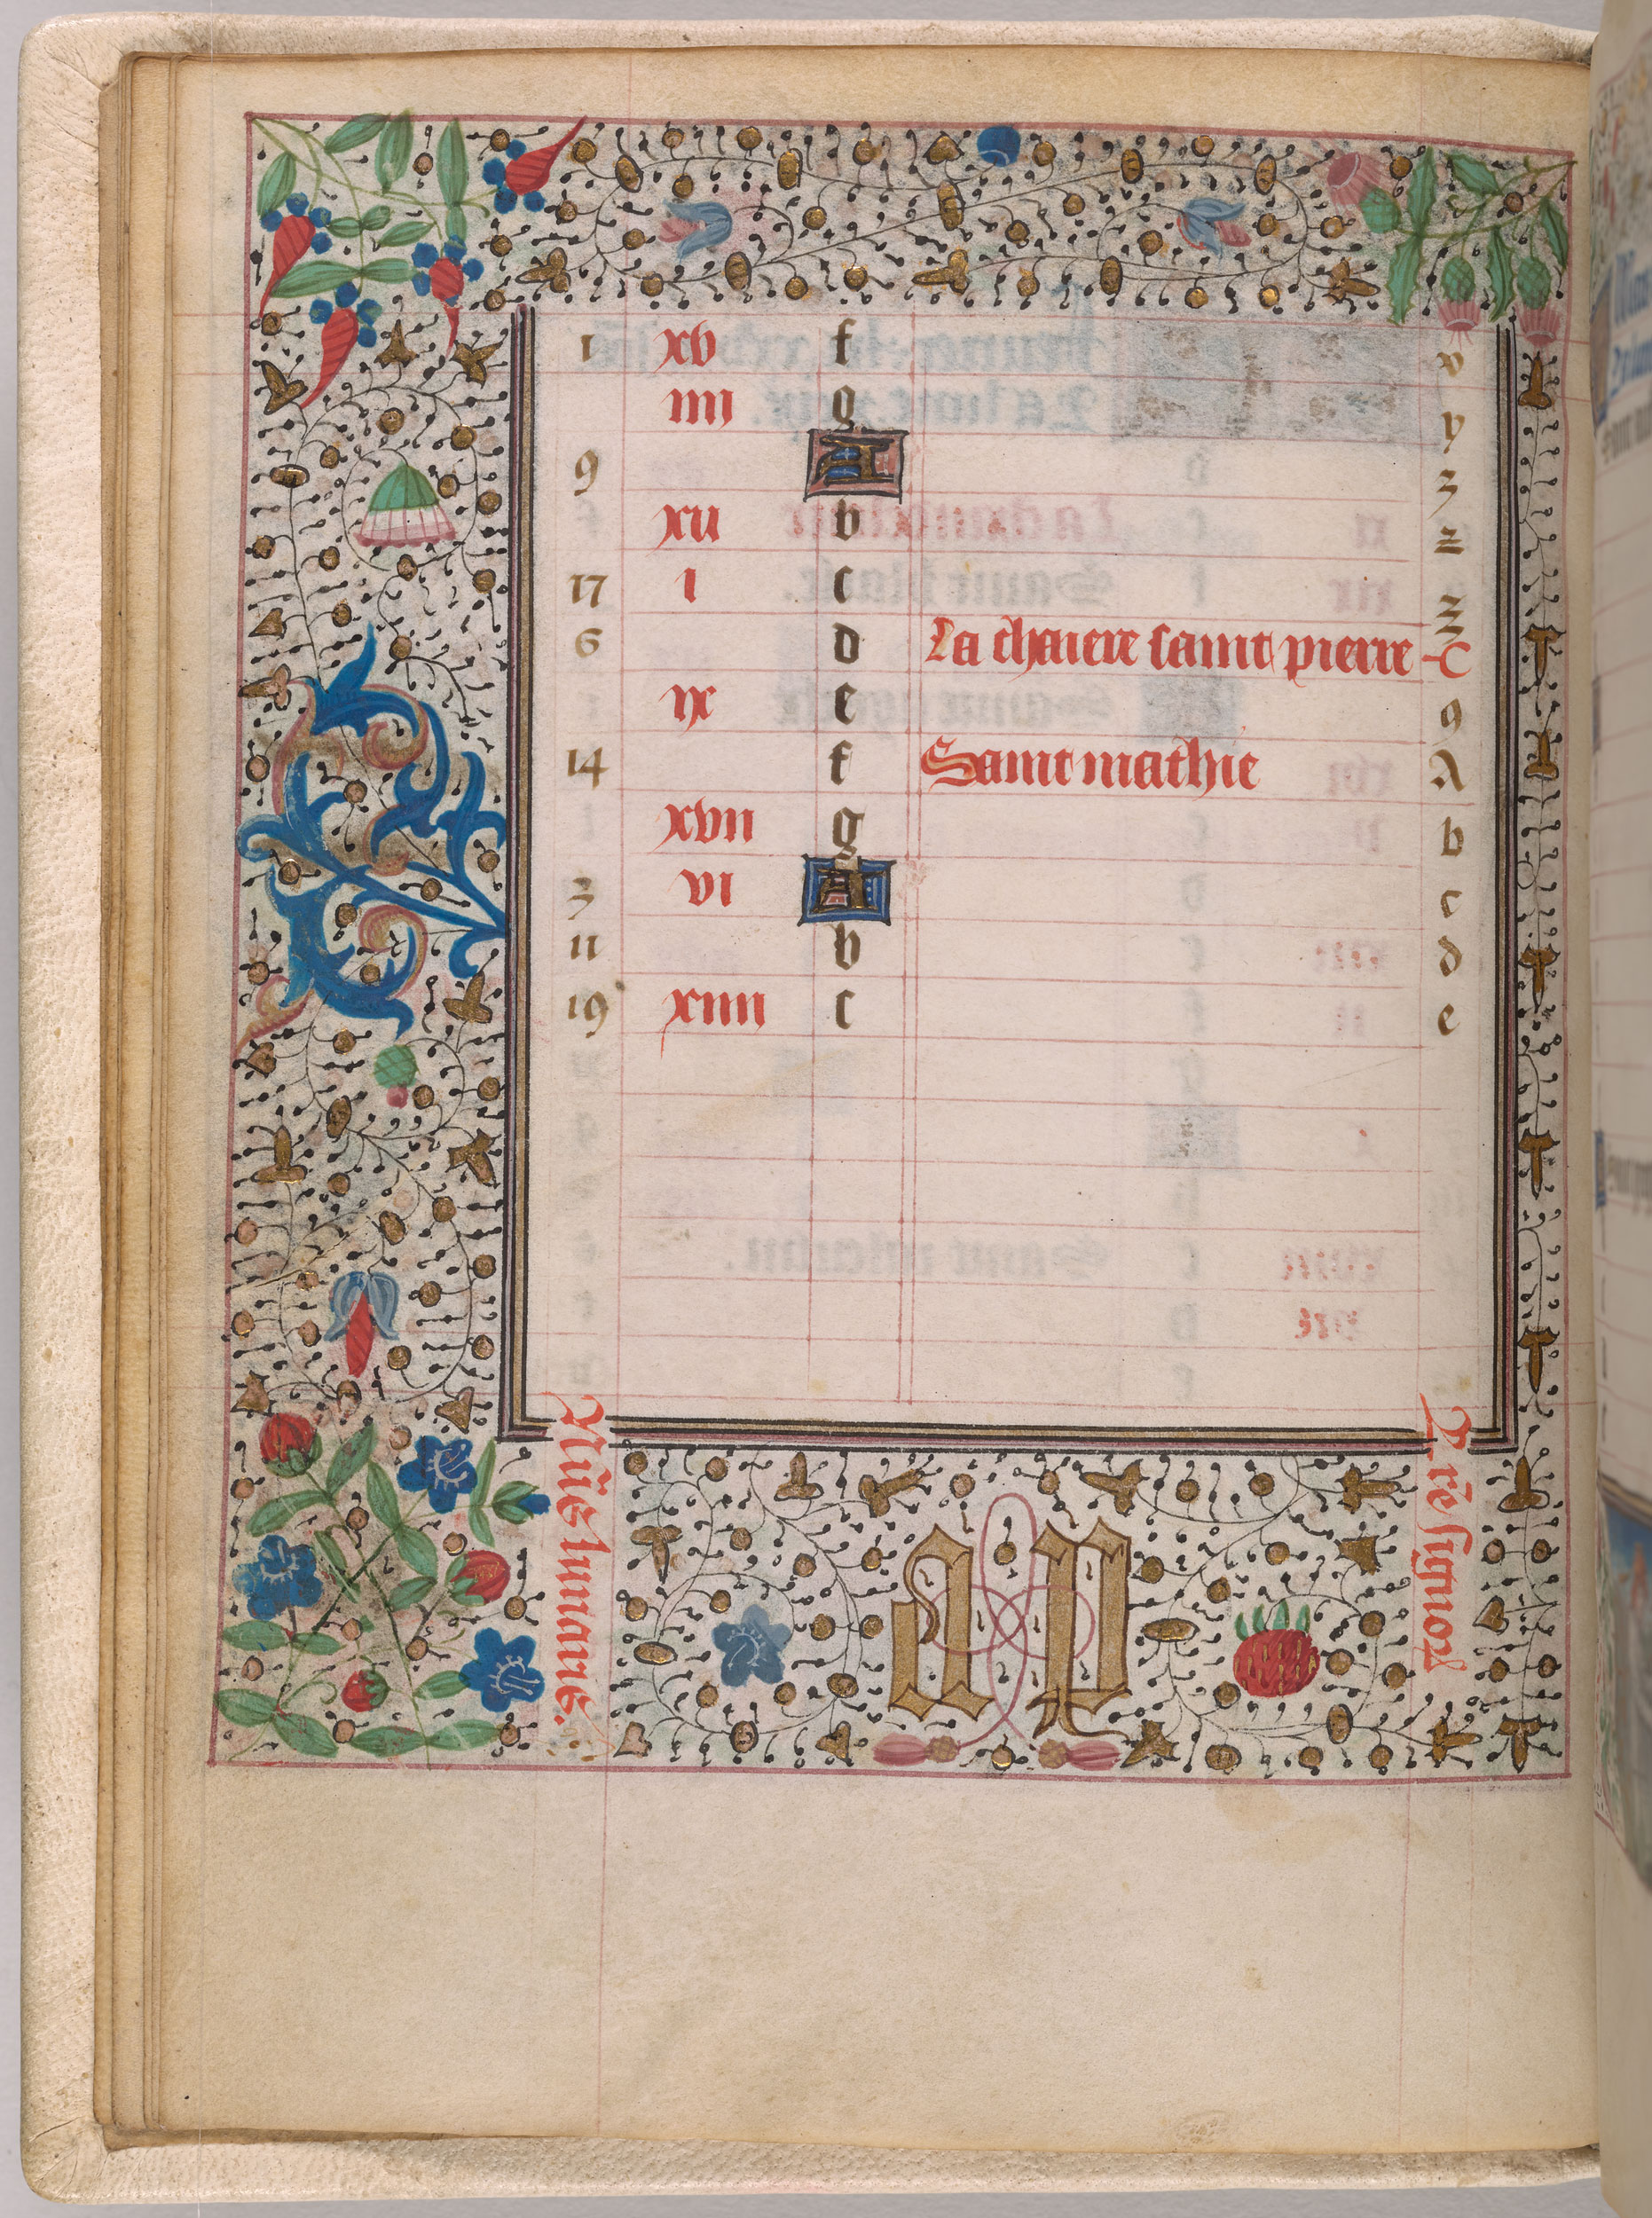 1 xv f v
iiii g y
9 A z
xii b z
17 i c z
6 d La chaiere saint pierre z
ix e 9
14 f Saint mathie A
xvii g b
3 vi A c
11 b d
19 xiiii c e
Nūēs lunares.